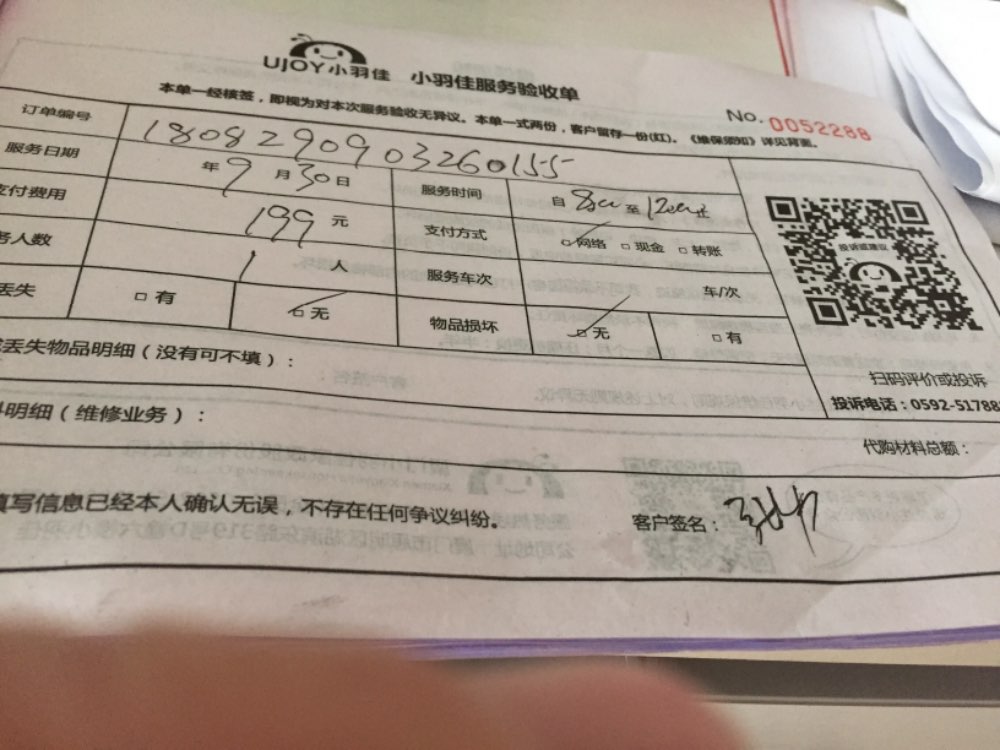 UJOY小羽佳 小羽佳服务验收单
本单一经核签，即视为对本次服务验收无异议。本单一式两份，客户留存一份(红)。《维保须知》详见背面。
No. 0052288
订单编号 1808290903260155
服务日期 年 9 月 30 日 服务时间 自 8:00 至 12:00 止
支付费用 199 元 支付方式 □网络 □现金 □转账
务人数 1 人 服务车次 车/次
丢失 □有 □无 物品损坏 □无 □有
投诉或建议
丢失物品明细（没有可不填）：
扫码评价或投诉
投诉电话：0592-51788
料明细（维修业务）：
代购材料总额：
填写信息已经本人确认无误，不存在任何争议纠纷。
客户签名：